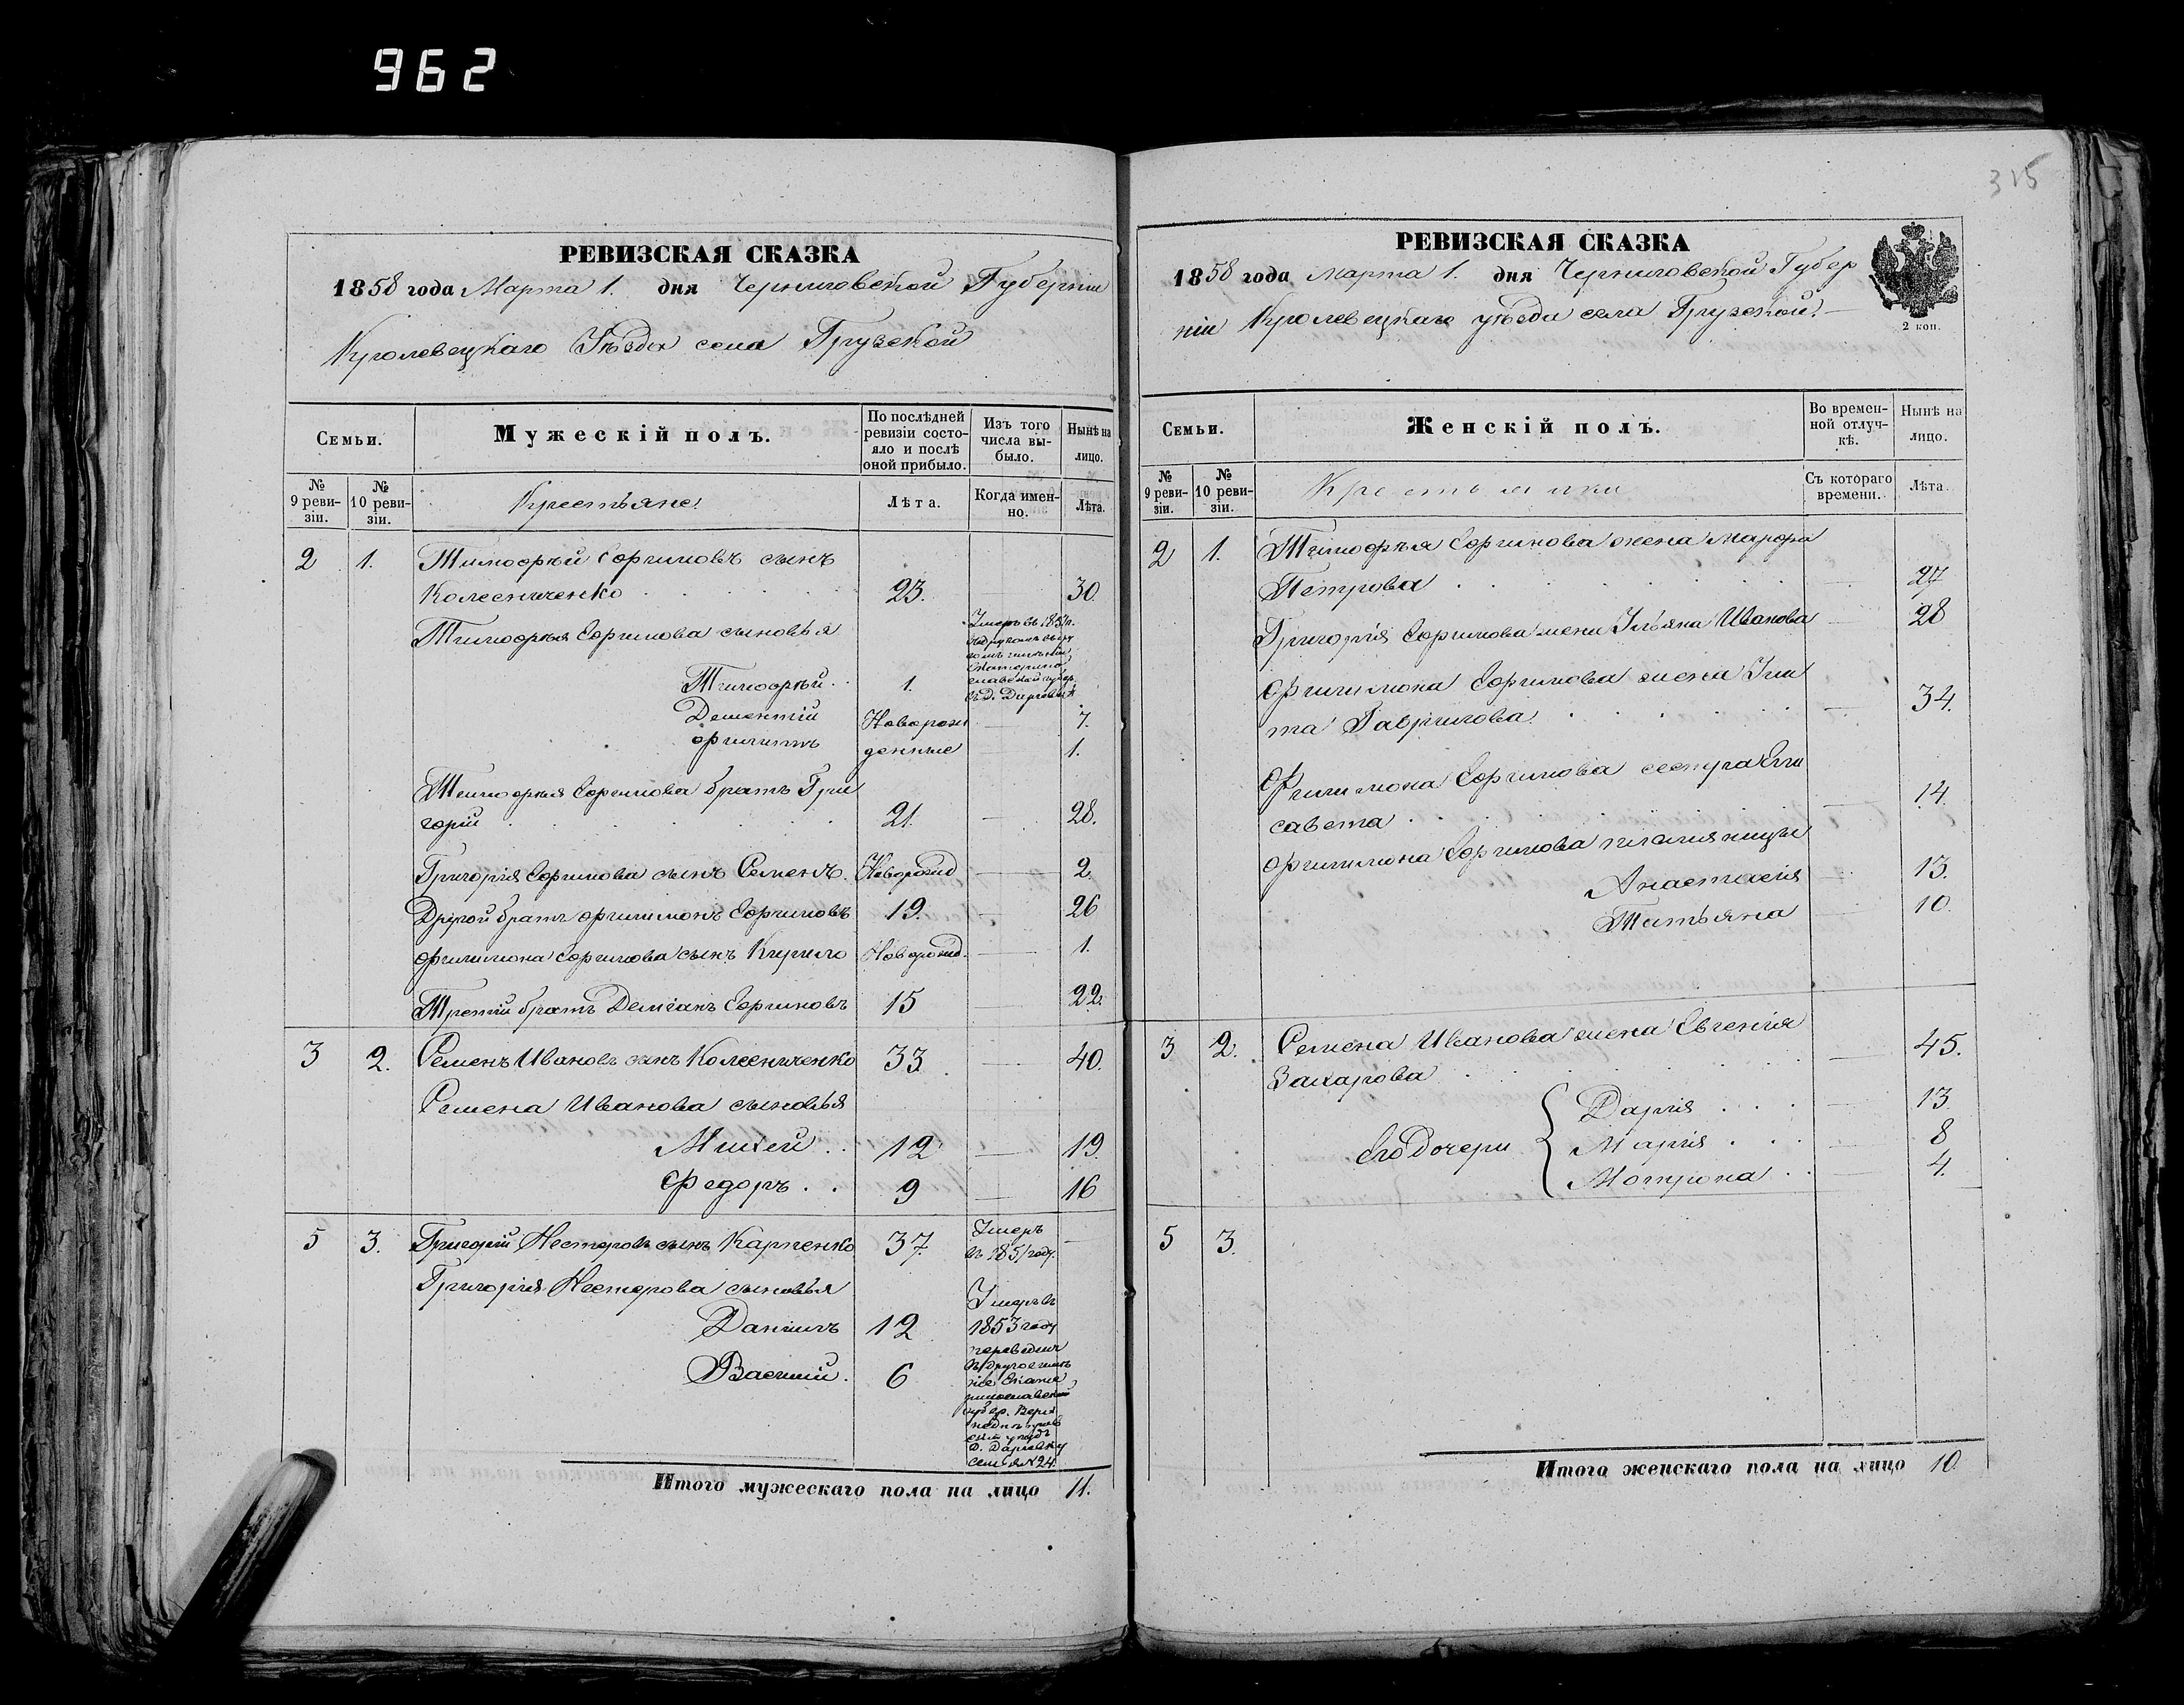 962
315
РЕВИЗСКАЯ СКАЗКА
1858 года Марта 1. дня Черниговской Губернии
Кролевецкаго Уѣзда села Грузской
Семьи.
Мужескій полъ.
По послѣдней ревизіи состояло и послѣ оной прибыло.
Изъ того числа выбыло.
Нынѣ на лицо.
№ 9 ревизіи.
№ 10 ревизіи.
Крестьяне
Лѣта.
Когда именно.
Лѣта.
2 1. Тимофѣй Ефимовъ сынъ
Колесниченко 23. 30.
Тимофѣя Ефимова сыновья
Тимофѣй 1. Умеръ въ
Дементій Новорож 7.
Филиппъ денные 1.
Тимофѣя Ефимова братъ Гри
горій 21. 28.
Григорія Ефимова сынъ Семенъ. Новорожд 2.
Другой братъ Филимонъ Ефимовъ 19. 26
Филимона Ефимова сынъ Кирило Новорожд. 1.
Третій братъ Деміянъ Ефимовъ 15 22.
3 2. Семенъ Ивановъ сынъ Колесниченко 33. 40.
Семена Иванова сыновья
Михей 12 19.
Федоръ 9 16
5 3. Григорій Нестеровъ сынъ Карпенко 37. Умеръ
въ 1851 году.
Григорія Нестерова сыновья
Даніилъ 12 Умеръ въ
1853 году
Василій. 6 переведенъ
въ другое имѣ
ніе Екате
ринославской
губер. Верх
неднѣпров
скій уѣздъ
Д. Дариевку
семья №24.
Итого мужескаго пола на лицо 11.
РЕВИЗСКАЯ СКАЗКА
1858 года Марта 1. дня Черниговской Губер
ніи Кролевецкаго уѣзда села Грузской.
2 коп.
Семьи.
Женскій полъ.
Во временной отлучкѣ.
Нынѣ на лицо.
№ 9 ревизіи.
№ 10 ревизіи.
Крестьянки
Съ котораго времени.
Лѣта.
2 1. Тимофѣя Ефимова жена Марфа
Петрова 27
Григорія Ефимова жена Ульяна Иванова 28
Филимона Ефимова жена Ули
та Гаврилова. 34.
Филимона Ефимова сестра Ели
савета 14.
Филимона Ефимова племянницы
Анастасія 13.
Татьяна 10.
3 2. Семена Иванова жена Евгенія
Захарова 45.
Его дочери
Дарія 13.
Марія 8
Мотрона 4.
5 3.
Итого женскаго пола на лицо 10.